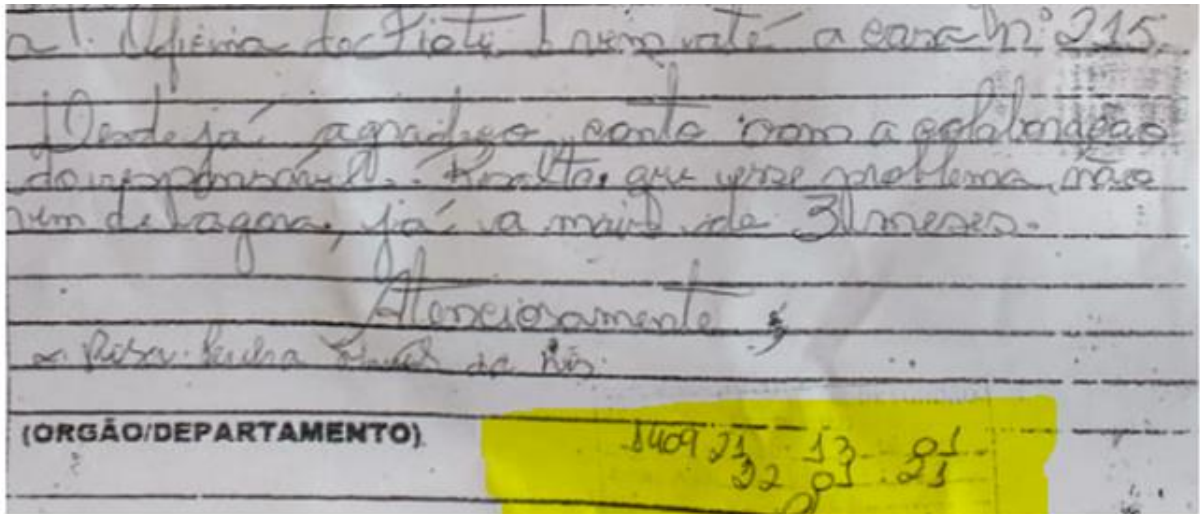 a Oficina do Fioti vem até a casa nº 215.
Desde já agradeço, conto com a colaboração
do responsável. Resalto, que esse problema, não
vem de agora, já a mais de 3 meses.
Atenciosamente
da
(ORGÃO/DEPARTAMENTO)
1409 21 13 01
22 01 21